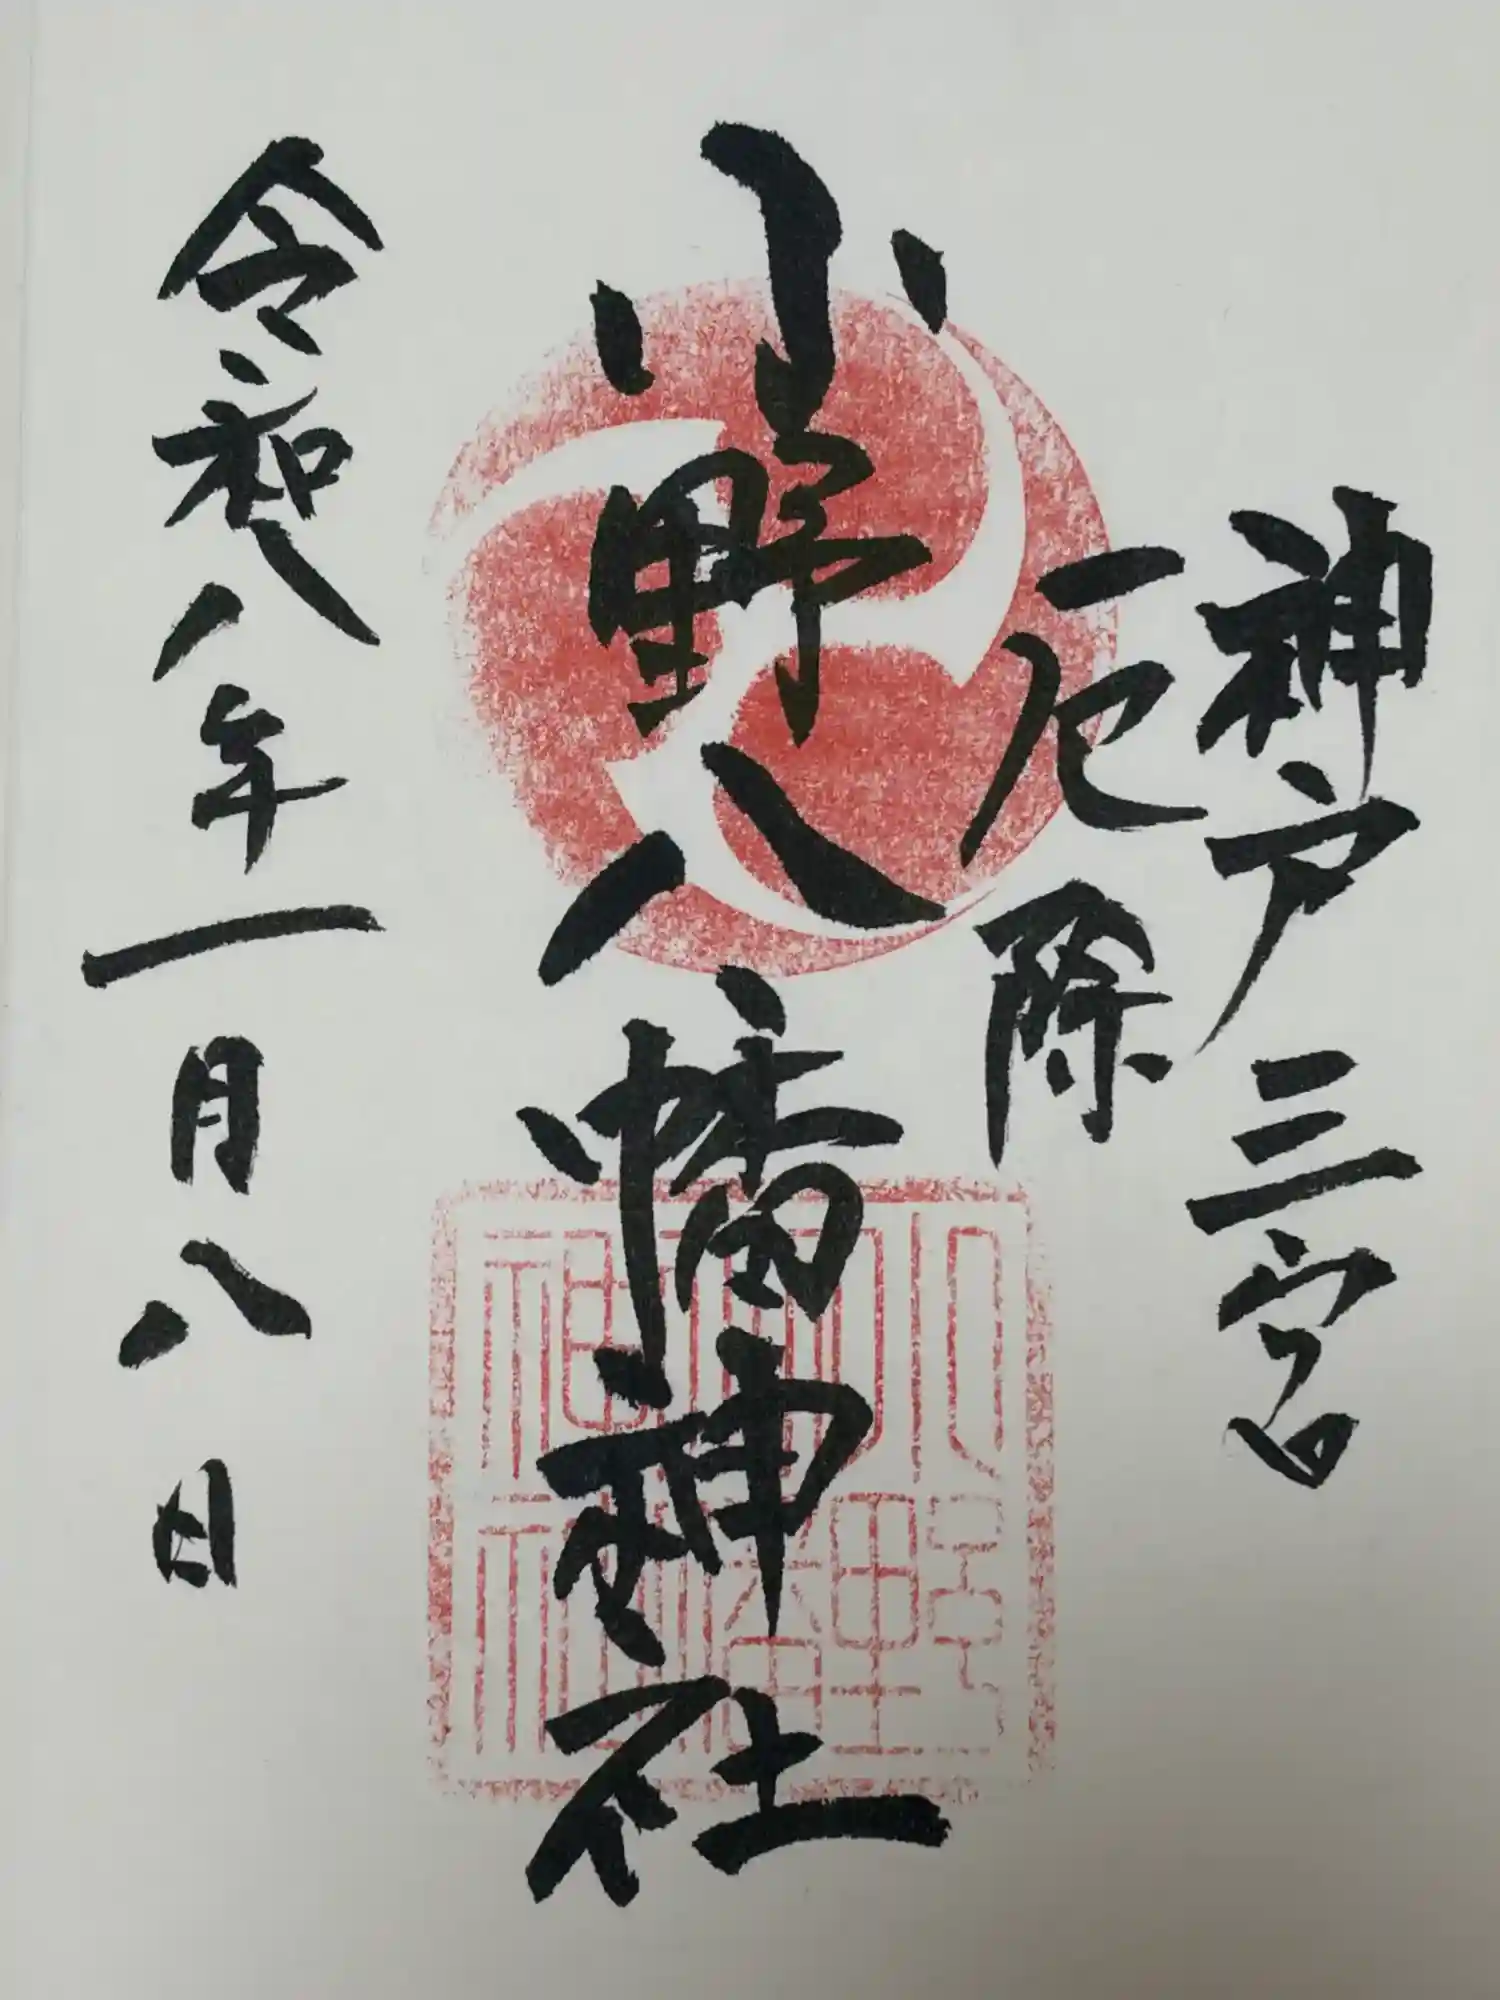 神戸三宮
厄除
小野八幡神社
令和八年一月八日
小野八幡神社